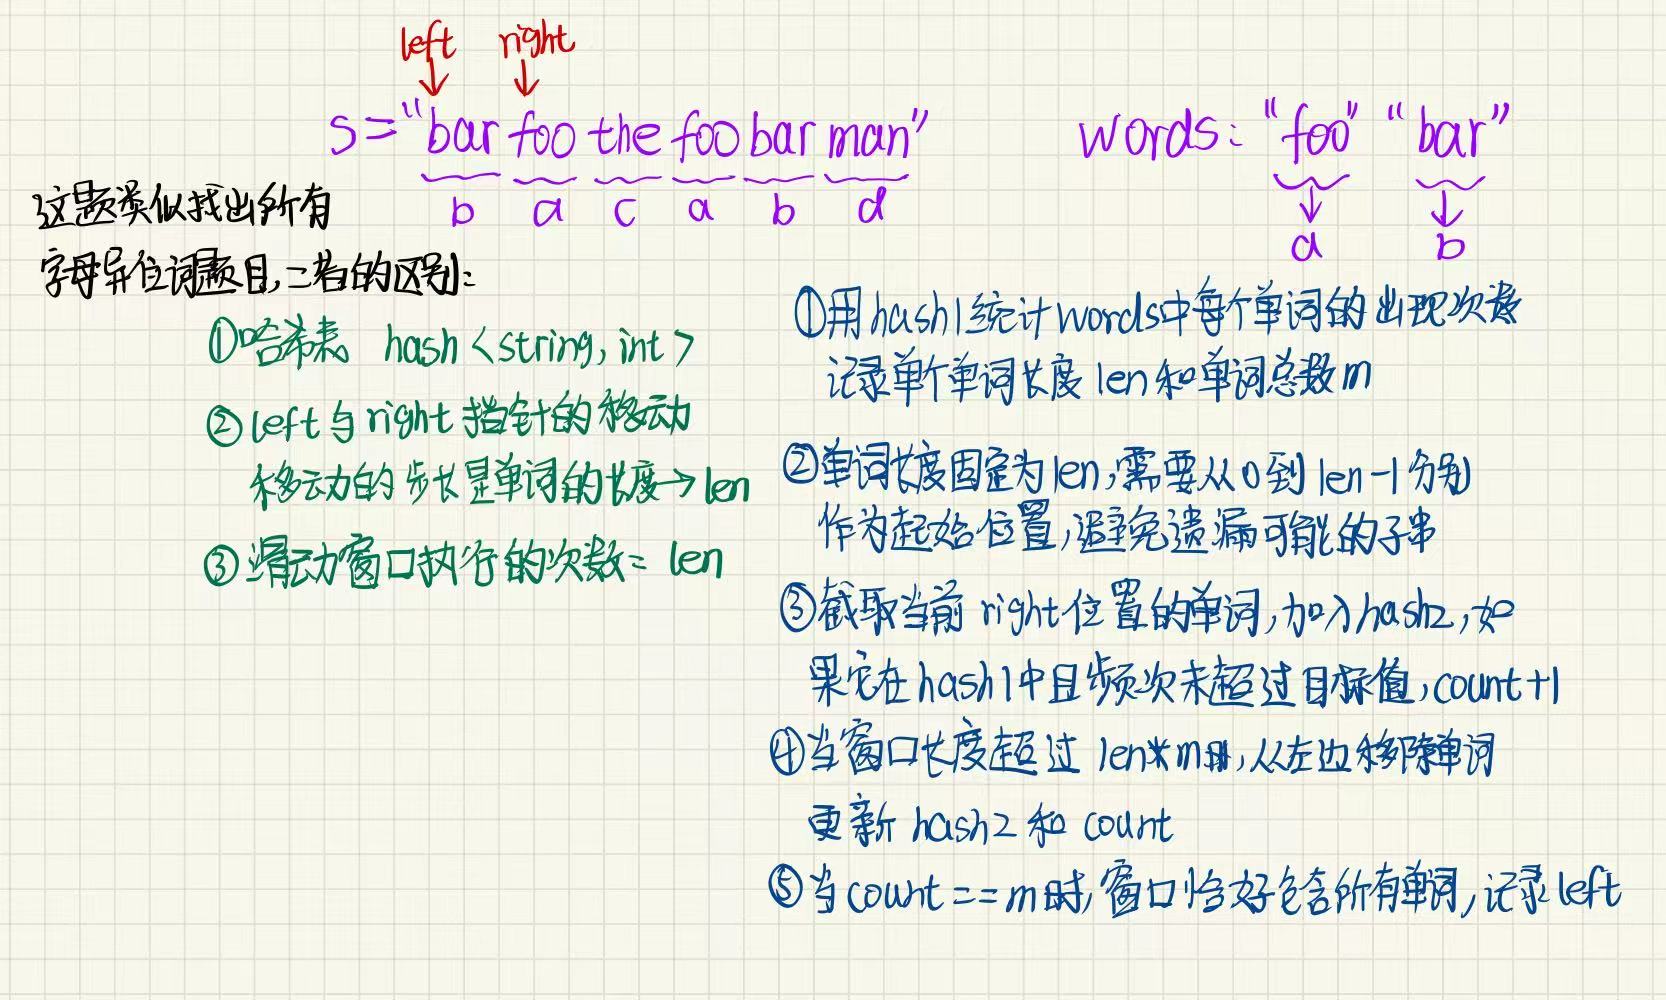 left right
s="bar foo the foo bar man"
words: "foo" "bar"
b a c a b d
a b
这题类似找出所有
字母异位词题目,二者的区别:
①哈希表 hash<string, int>
②left与right指针的移动
移动的步长是单词的长度→len
③滑动窗口执行的次数= len
①用hash1统计words中每个单词的出现次数
记录单个单词长度len和单词总数m
②单词长度固定为len,需要从0到len-1分别
作为起始位置,避免遗漏可能的子串
③截取当前right位置的单词,加入hash2,如
果它在hash1中且频次未超过目标值,count+1
④当窗口长度超过len*m时,从左边移除单词
更新hash2和count
⑤当count==m时,窗口恰好包含所有单词,记录left